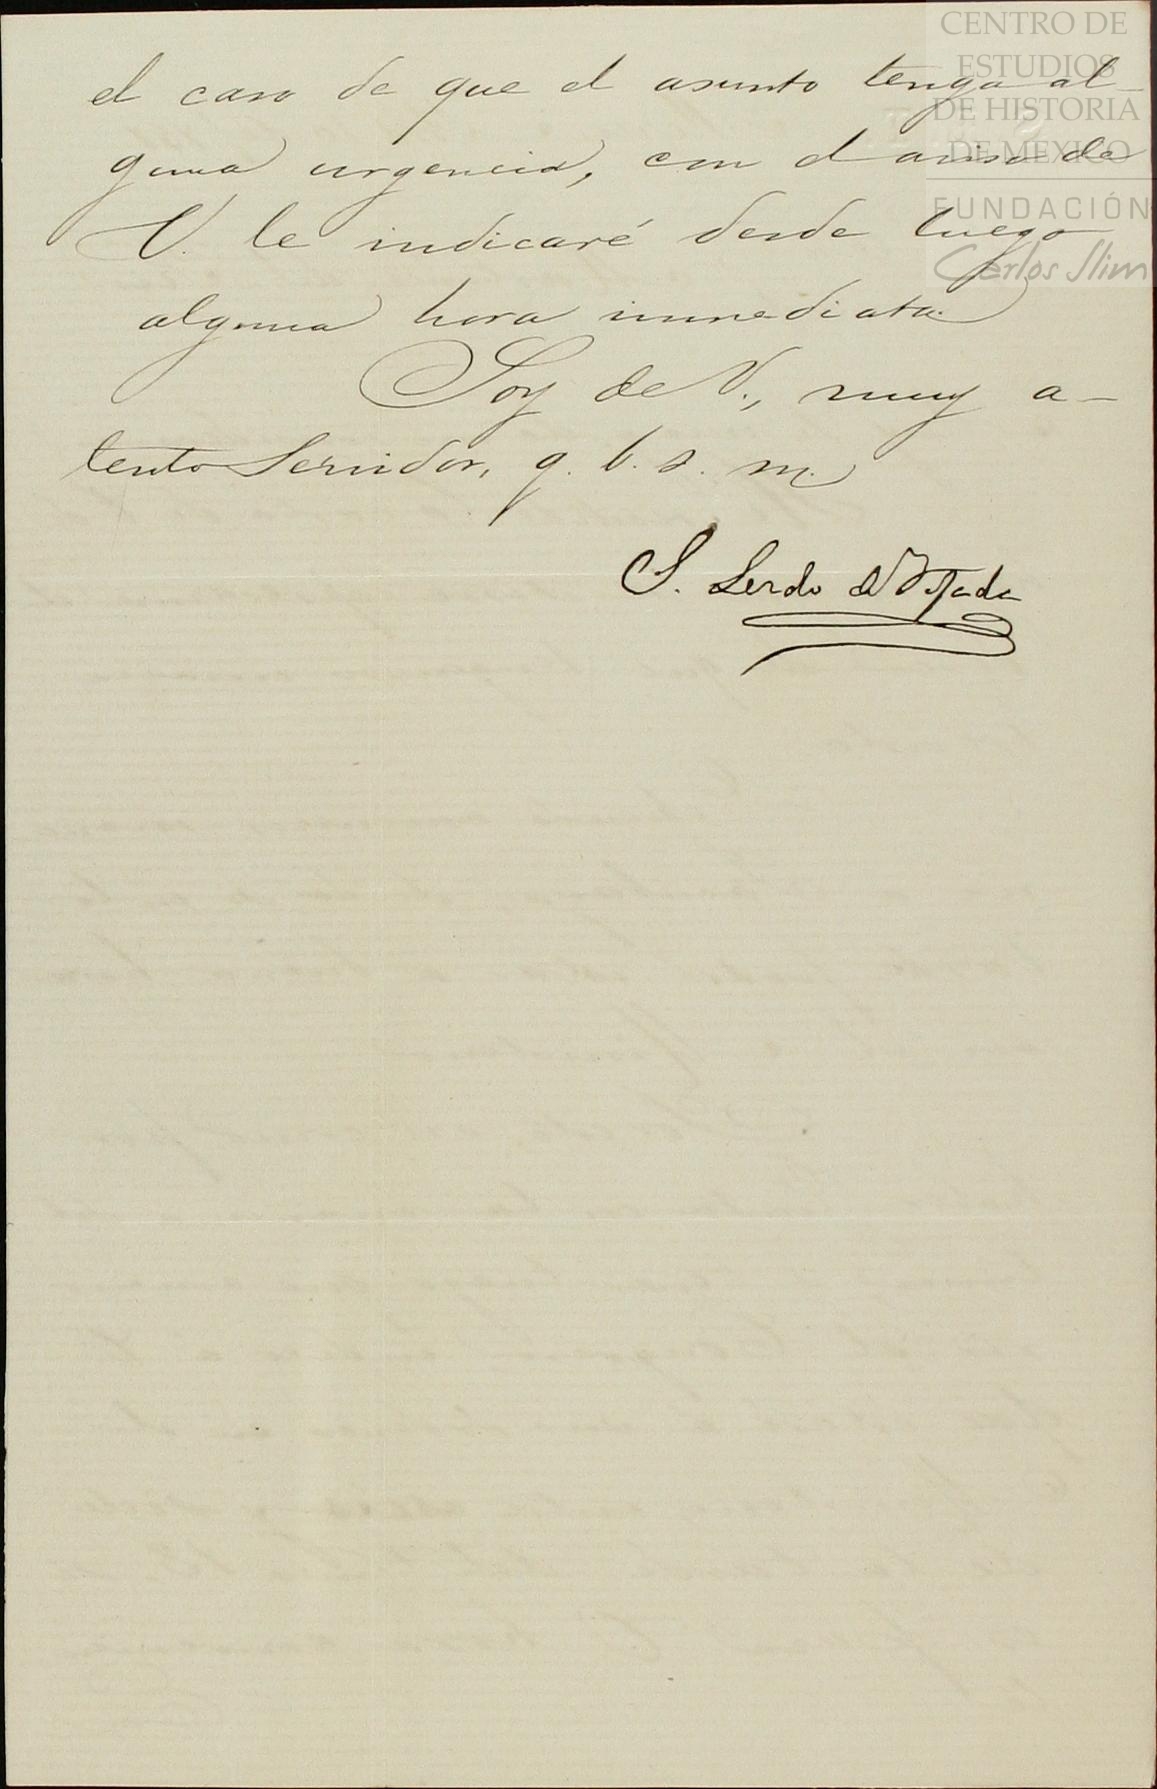 CENTRO DE
ESTUDIOS
DE HISTORIA
DE MÉXICO
FUNDACIÓN
Carlos Slim
el caso de que el asunto tenga al-
guna urgencia, con el aviso de
V. le indicaré desde luego
alguna hora inmediata.
Soy de V., muy a-
tento Servidor, q. b. s. m.
S. Lerdo de Tejada